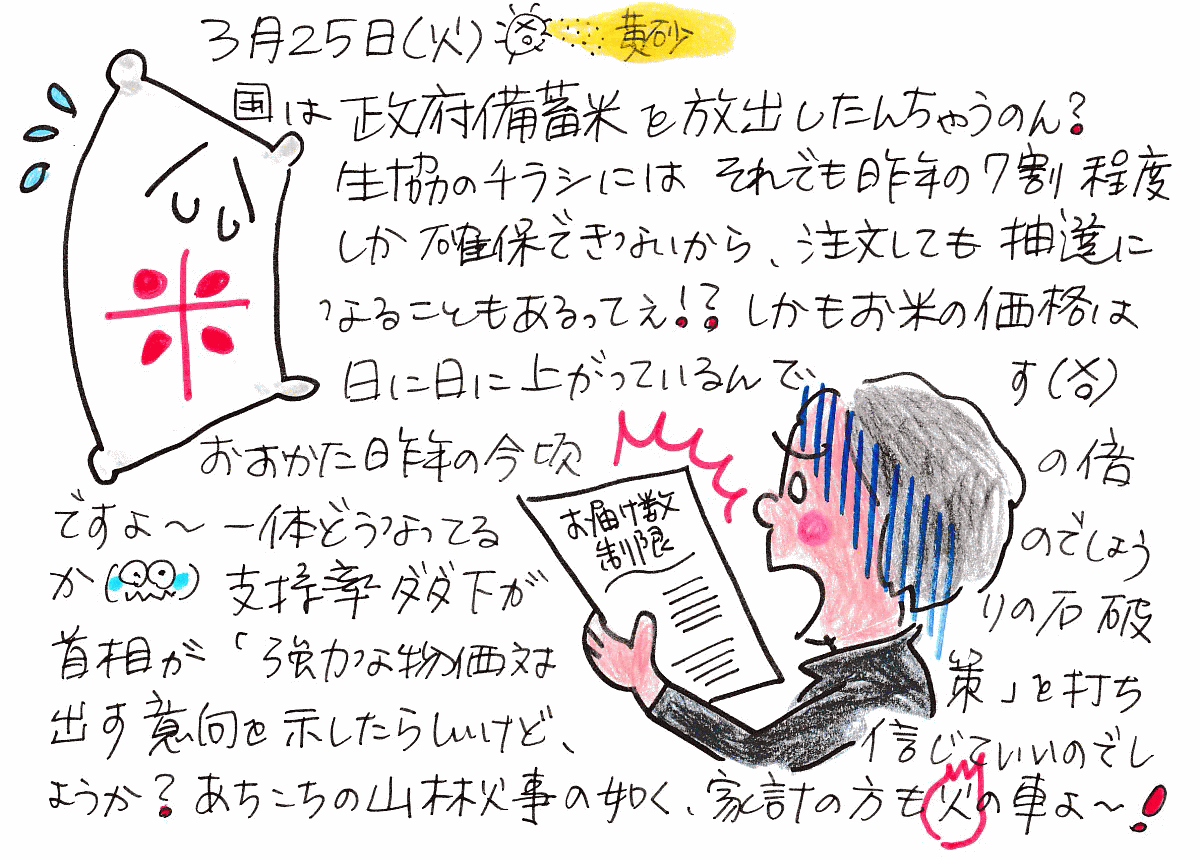 3月25日(火) 黄砂
国は政府備蓄米を放出したんちゃうのん?
生協のチラシには それでも昨年の7割程度
しか確保できないから、注文しても抽選に
なることもあるってぇ!?しかもお米の価格は
日に日に上がっているんです(××)
おおかた昨年の今頃の倍
ですよ〜 一体どうなってるのでしょう
か 支持率ダダ下がりの石破
首相が「強力な物価対策」を打ち
出す意向を示したらしいけど、信じていいのでし
ょうか?あちこちの山林火事の如く、家計の方も火の車よ〜!
米
お届け数
制限